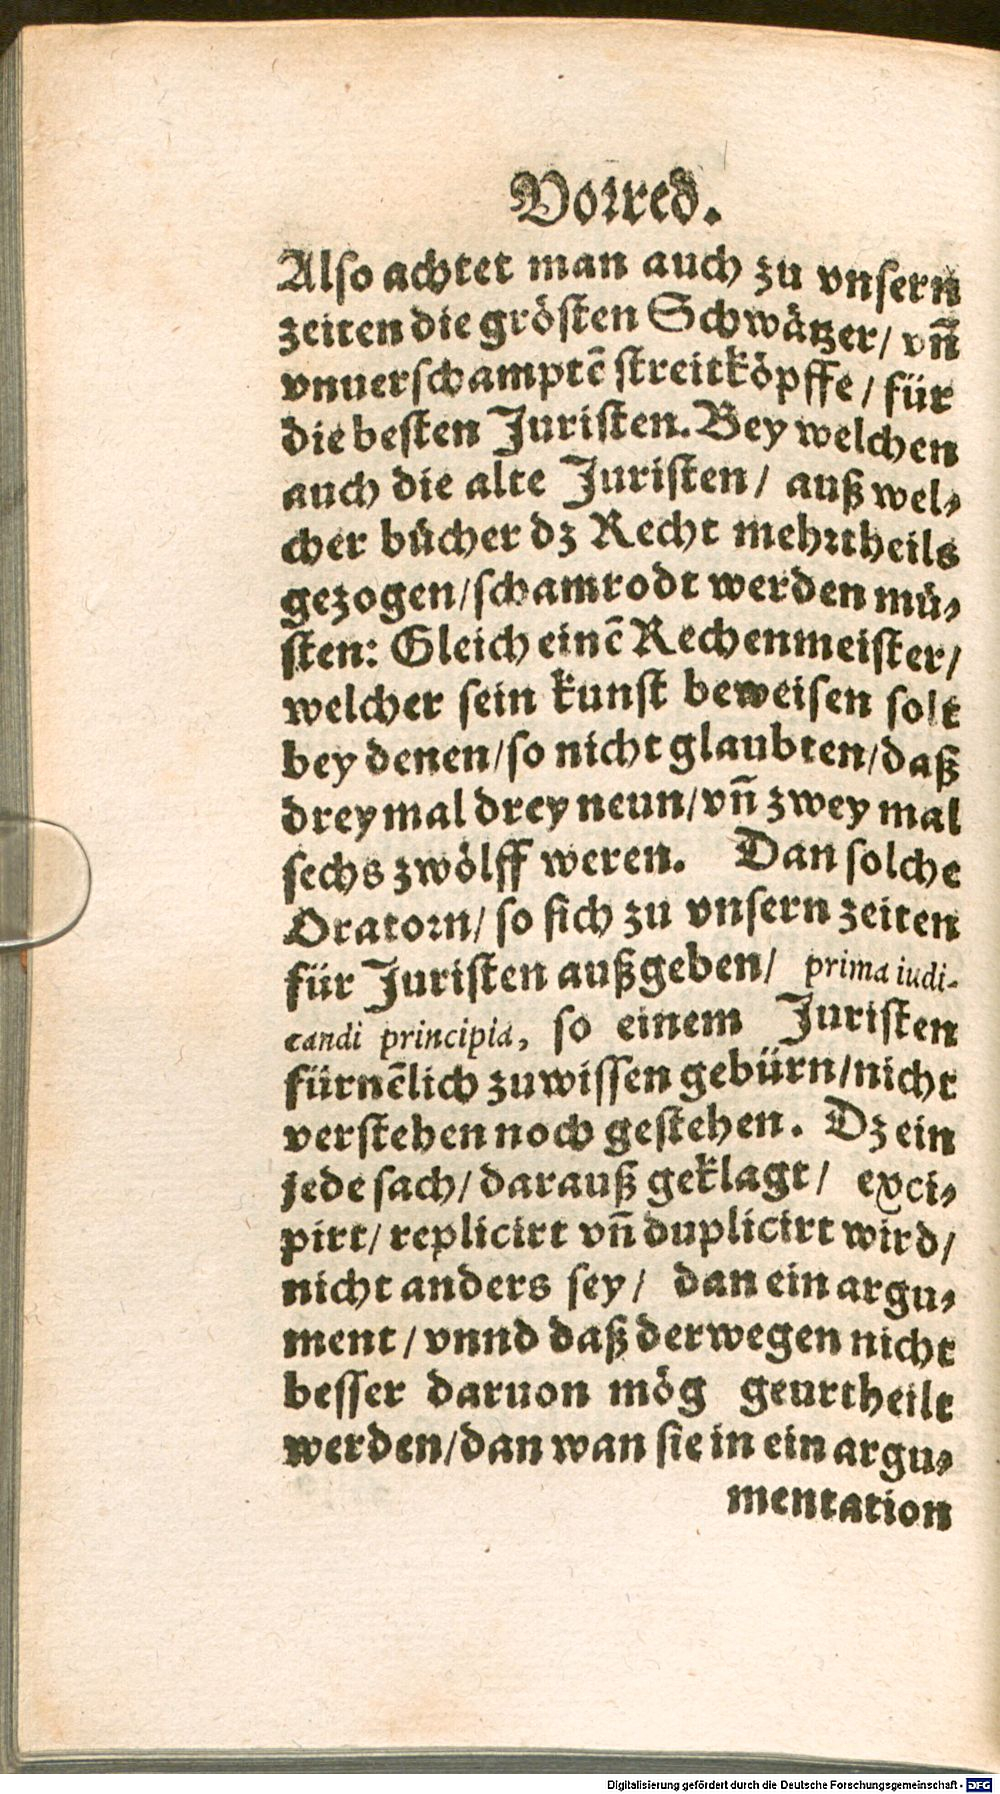 Vorred.
Also achtet man auch zu vnsern
zeiten die grösten Schwätzer/ vñ
vnuerschamptẽ streitköpffe/ für
die besten Juristen. Bey welchen
auch die alte Juristen/ auß wel-
cher bücher dz Recht mehrtheils
gezogen/ schamrodt werden mü-
sten: Gleich einẽ Rechenmeister/
welcher sein kunst beweisen solt
bey denen/ so nicht glaubten/ daß
drey mal drey neun/ vñ zwey mal
sechs zwölff weren. Dan solche
Oratorn/ so sich zu vnsern zeiten
für Juristen außgeben/ prima iudi-
candi principia, so einem Juristen
fürnẽlich zuwissen gebürn/ nicht
verstehen noch gestehen. Dz ein
jede sach/ darauß geklagt/ exci-
pirt/ replicirt vñ duplicirt wird/
nicht anders sey/ dan ein argu-
ment/ vnnd daß derwegen nicht
besser daruon mög geurtheilt
werden/ dan wan sie in ein argu-
mentation
Digitalisierung gefördert durch die Deutsche Forschungsgemeinschaft - DFG